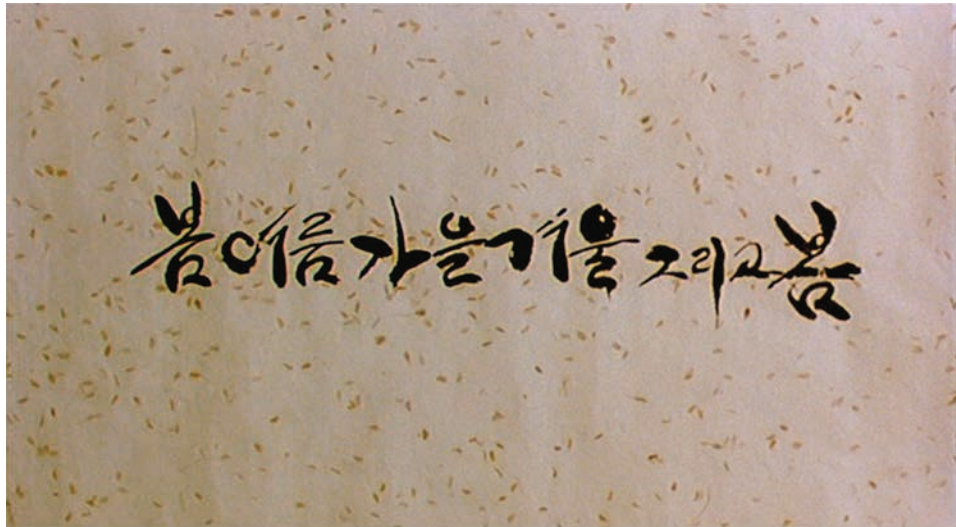 봄여름가을겨울그리고봄